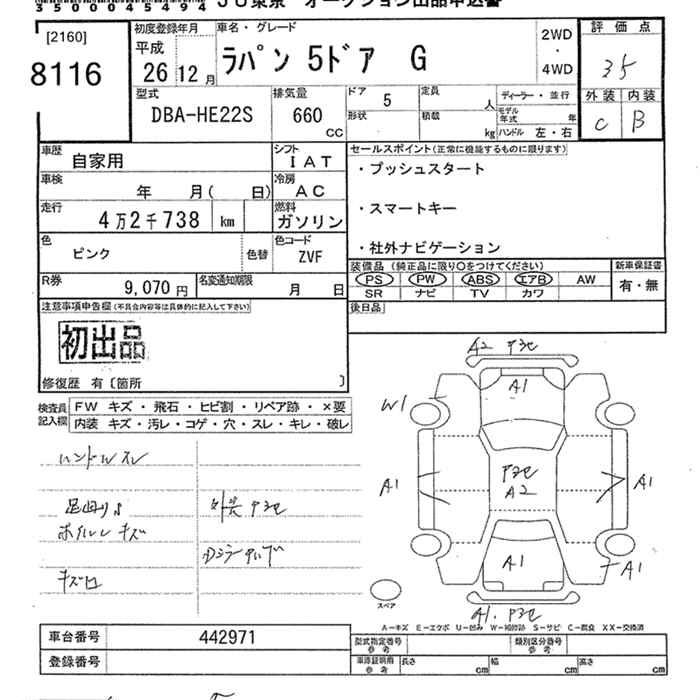 35000454494 JU東京 オークション出品申込書
[2160]
8116
初度登録年月
平成
26 12 月
車名・グレード
ラパン 5ドア G
2WD
・
4WD
評価点
35
外装 内装
C B
型式
DBA-HE22S
排気量
660
CC
ドア 5
形状
定員 人
積載 kg
ディーラー・並行
モデル年式 年
ハンドル 左・右
車歴 自家用
シフト IAT
車検 年 月( 日)
冷房 AC
走行 4万2千738 km
燃料 ガソリン
色 ピンク 色替
色コード ZVF
R券 9,070円
名変通知期限 月 日
セールスポイント(正常に機能するものに限ります)
・プッシュスタート
・スマートキー
・社外ナビゲーション
装備品(純正品に限り○をつけてください)
PS PW ABS エアB AW
SR ナビ TV カワ
新車保証書
有・無
後日品
注意事項申告欄(不具合内容等は具体的に記入して下さい)
初出品
修復歴 有〔箇所 〕
検査員記入欄
FW キズ・飛石・ヒビ割・リペア跡・×要
内装 キズ・汚レ・コゲ・穴・スレ・キレ・破レ
ハンドルスレ
足廻りサ
外装 P3セ
ホイルレキズ
キズロ
A2 P3セ
A1
W1
A1
P3セ
A2
A1
A1
A1
A1. P3セ
スペア
A-キズ E-エクボ U-凹み W-補修跡 S-サビ C-腐食 XX-交換済
車台番号 442971
登録番号
型式指定番号 参考
類別区分番号 参考
車庫証明用 参考
長さ cm 幅 cm 高さ cm